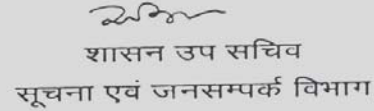 शासन उप सचिव
सूचना एवं जनसम्पर्क विभाग